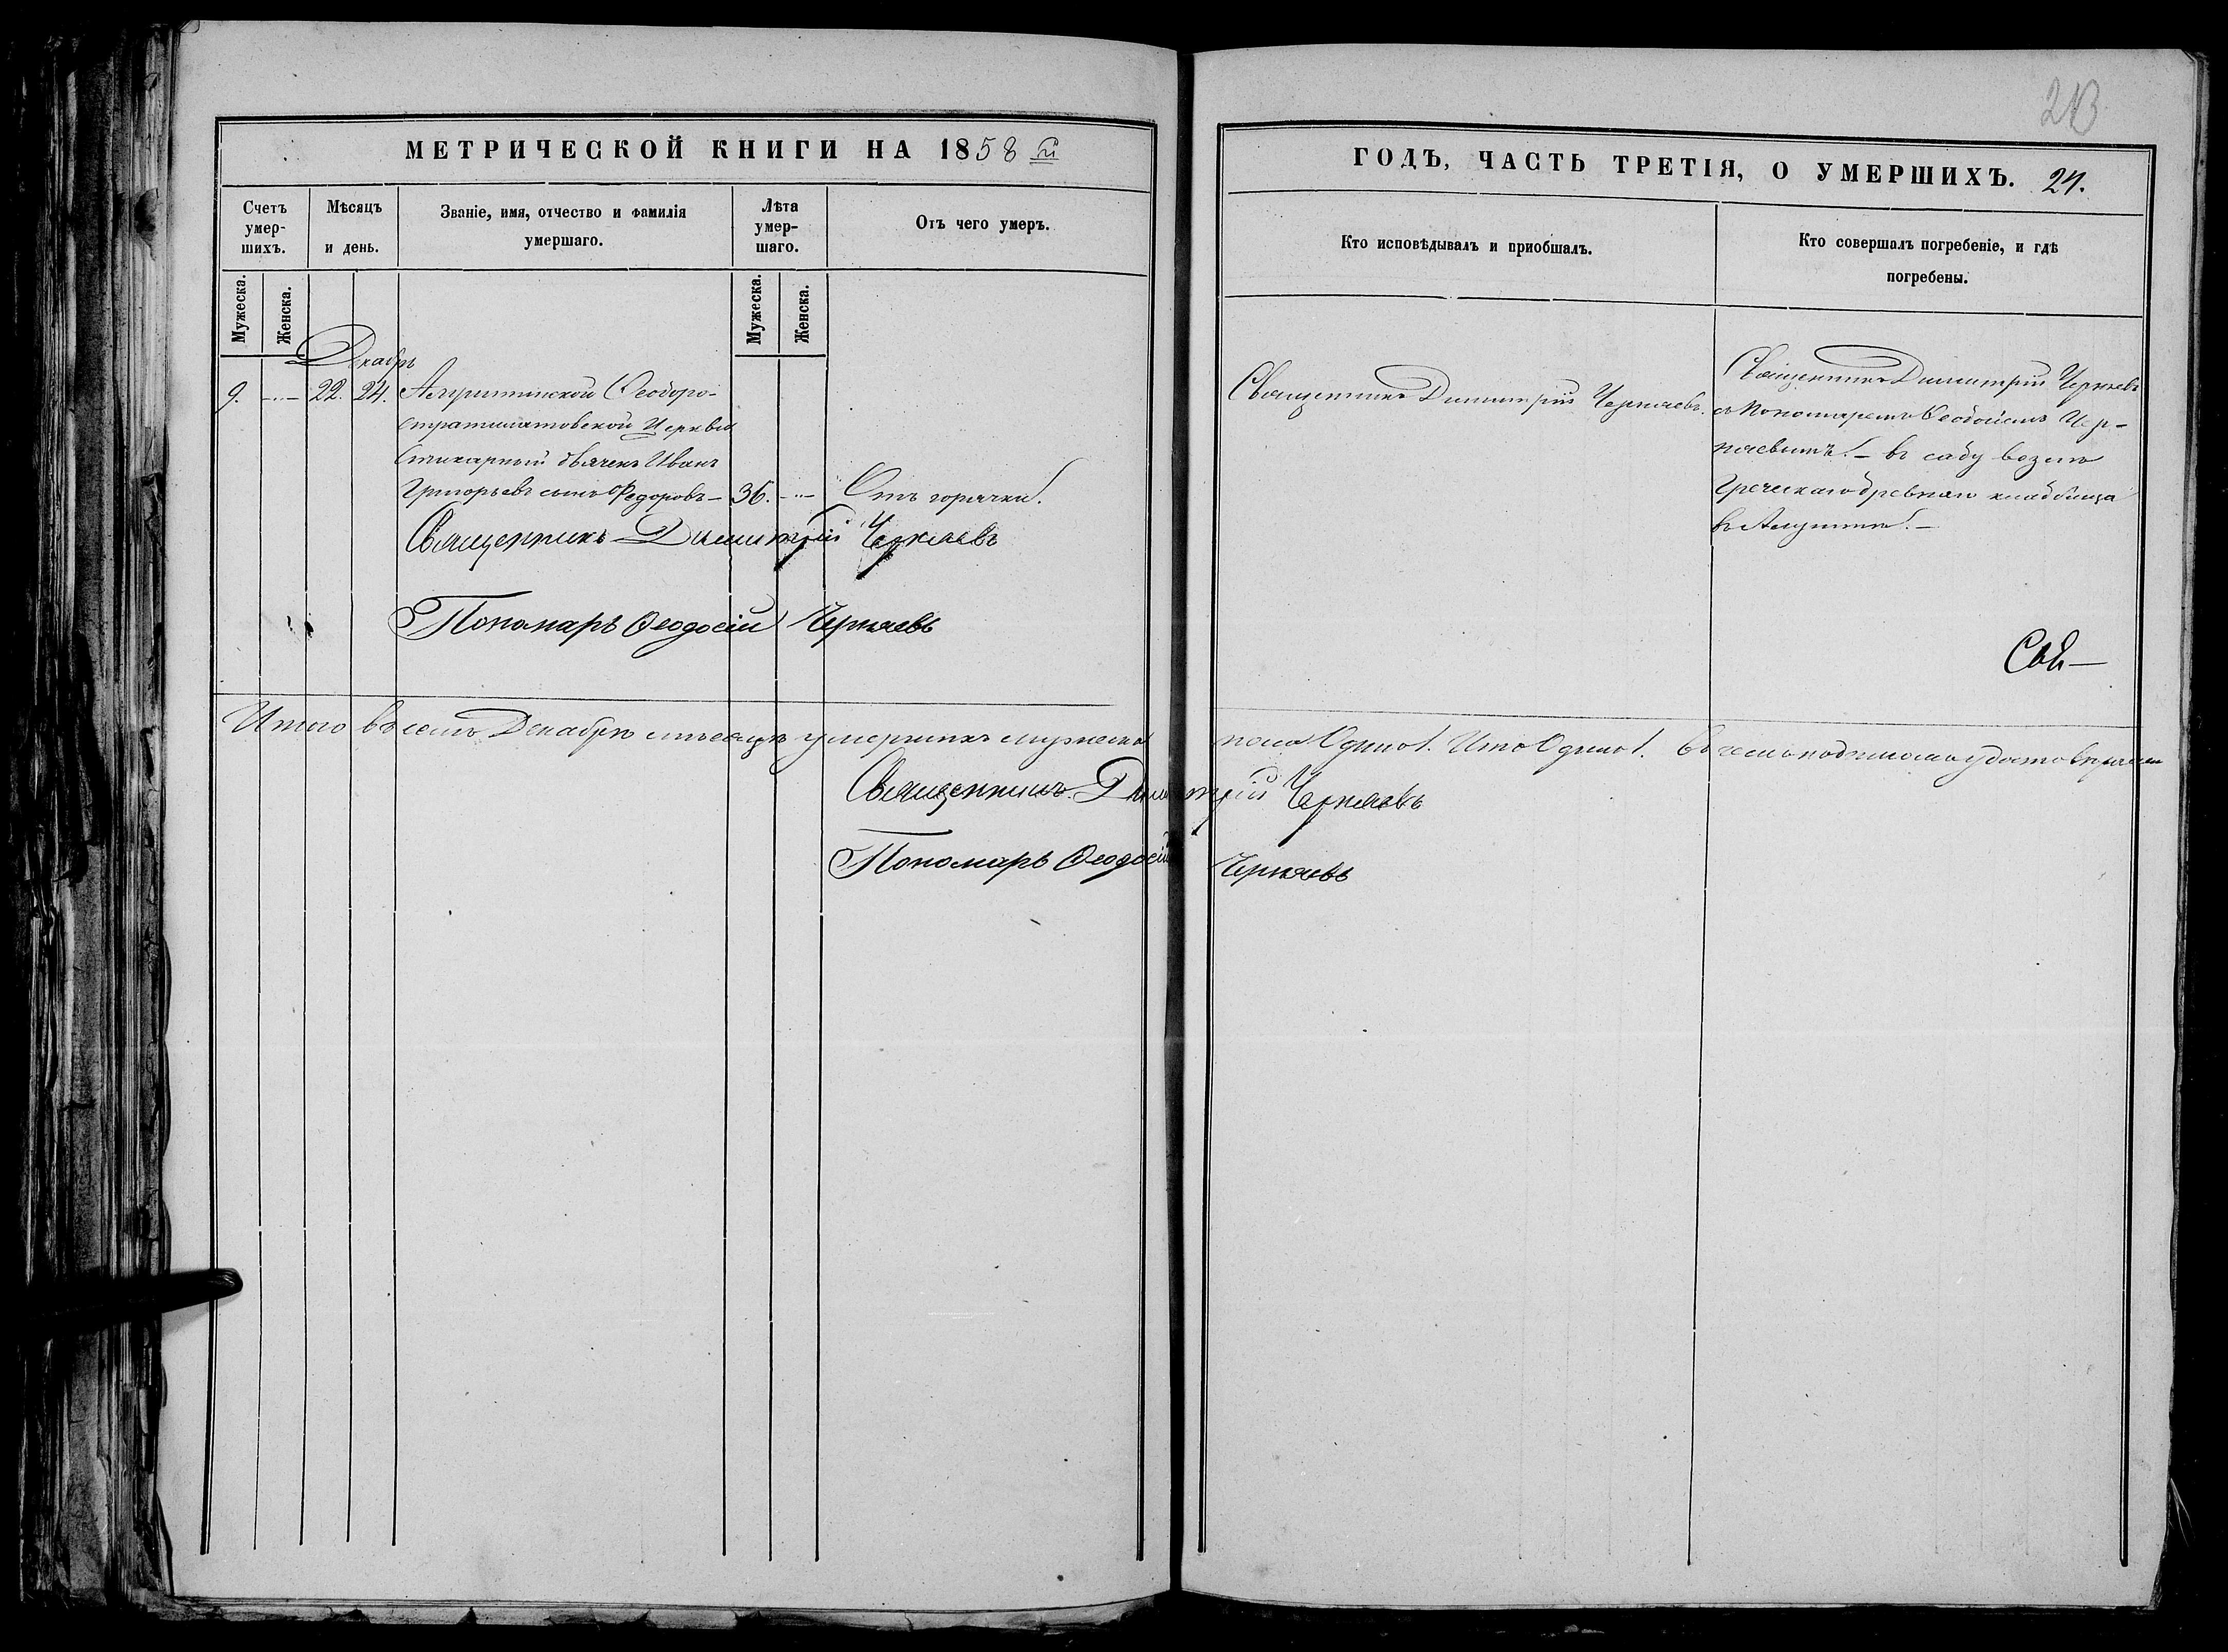 213
МЕТРИЧЕСКОЙ КНИГИ НА 1858 й
ГОДЪ, ЧАСТЬ ТРЕТІЯ, О УМЕРШИХЪ. 24.
Счетъ умер- шихъ.
Мѣсяцъ и день.
Званіе, имя, отчество и фамилія умершаго.
Лѣта умер- шаго.
Отъ чего умеръ.
Кто исповѣдывалъ и приобшалъ.
Кто совершалъ погребеніе, и гдѣ погребены.
Мужеска.
Женска.
Мужеска.
Женска.
Декабрь
9. 22. 24. Алуштинской Ѳеодоро-
стратилатовской Церкви
Стихарный дьячекъ Иванъ
Григорьевъ сынъ Федоровъ — 36. Отъ горячки.
Священникъ Димитрій Черняевъ
Пономарь Ѳеодосій Черняевъ
Священникъ Димитрій Черняевъ.
Священникъ Димитрій Черняевъ
съ Пономаремъ Ѳеодосіемъ Чер-
няевымъ. — въ саду возлѣ
Греческаго древняго кладбища
въ Алуштѣ. —
Итого въ семъ Декабрѣ мѣсяцѣ умершихъ мужеска пола Одинъ 1. Итого Одинъ 1. Въ чемъ подписомъ удостовѣряемъ
Священникъ Димитрій Черняевъ
Пономарь Ѳеодосій Черняевъ